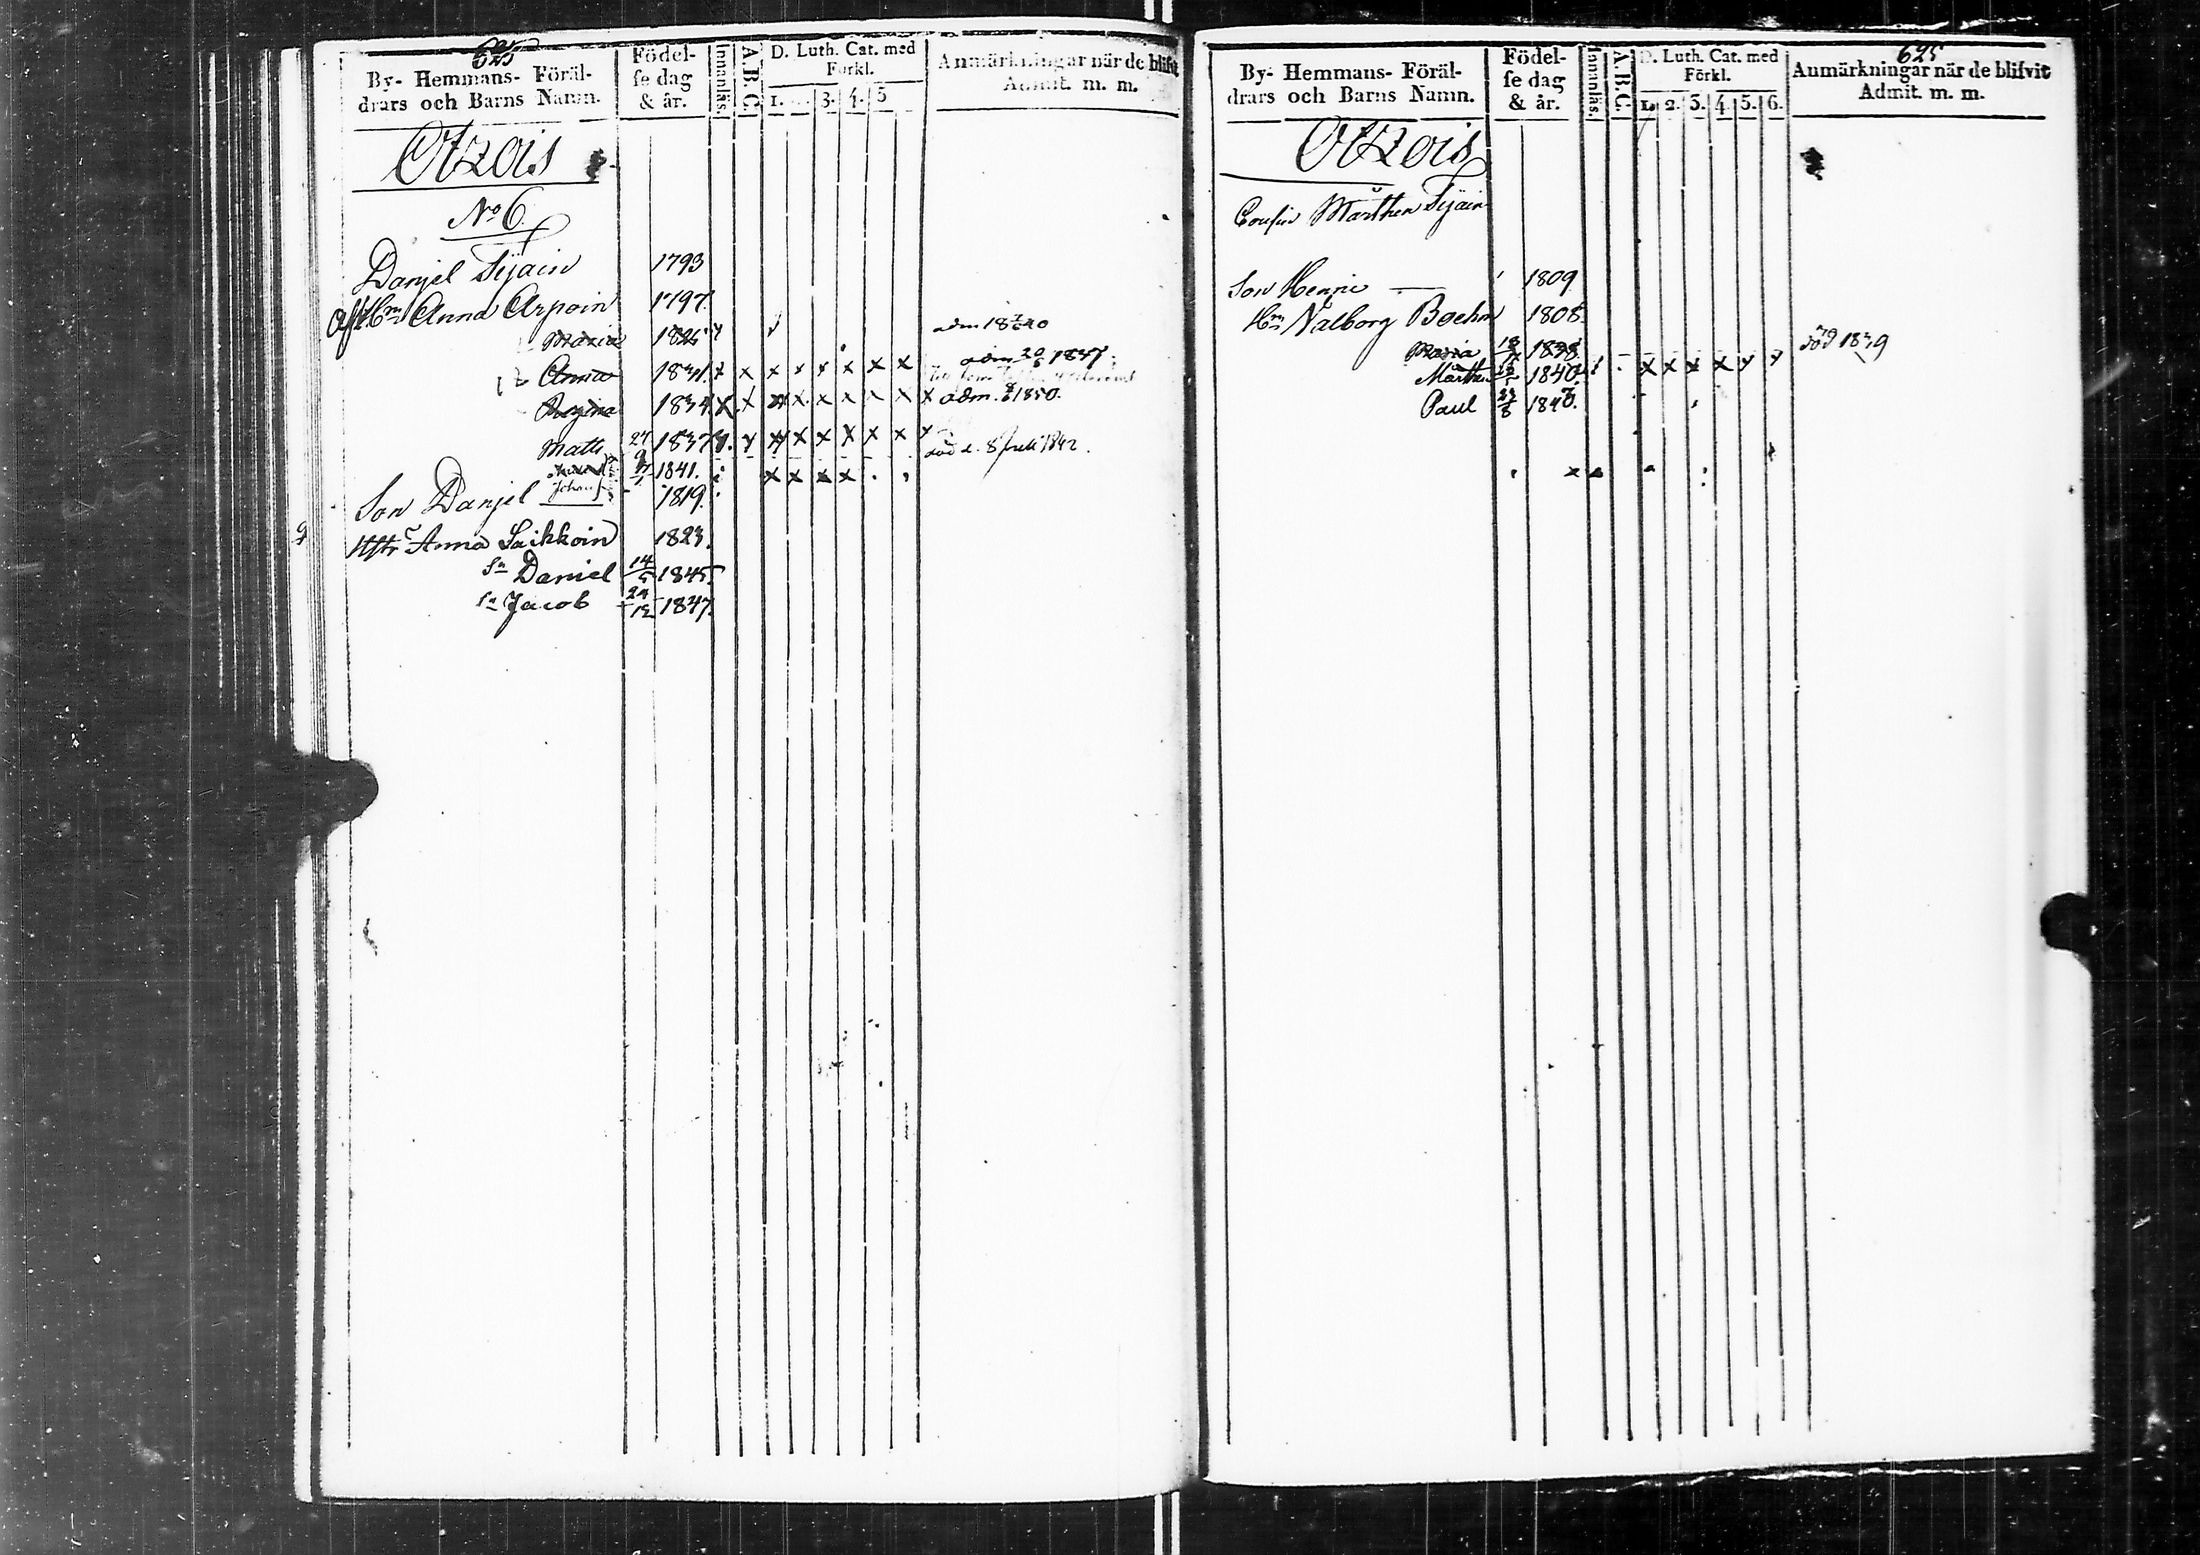 625
By- Hemmans- Föräl-
drars och Barns Namn.
Födel-
se dag
& år.
Innanläs.
A.B.C.
D. Luth. Cat. med
Förkl.
1. 3. 4. 5
Anmärkningar när de blifvit
Admit. m. m.
Otzois
No 6
Danjel Tijain 1793
Hm Anna Arpoin 1797.
Maria 1825 adm 18 40
Anna 1831. adm 20/6 1847.
Regina 1834. adm. 1850.
Matts 27/9 1837
Johan 1841. död d. 8 Juli 1842.
Son Danjel 1819.
Hstr Anna Laikkoin 1823.
Sn Daniel 14/5 1845.
Sn Jacob 29/12 1847.
625
By- Hemmans- Föräl-
drars och Barns Namn.
Födel-
se dag
& år.
Innanläs.
A.B.C.
D. Luth. Cat. med
Förkl.
1. 2. 3. 4. 5. 6.
Anmärkningar när de blifvit
Admit. m. m.
Otzois
Cousin Mårthen Tijain
Son Henric 1809
Hm Valborg Boehm 1808.
Maria 1838. död 1839
Mårthen 1840.
Paul 23/8